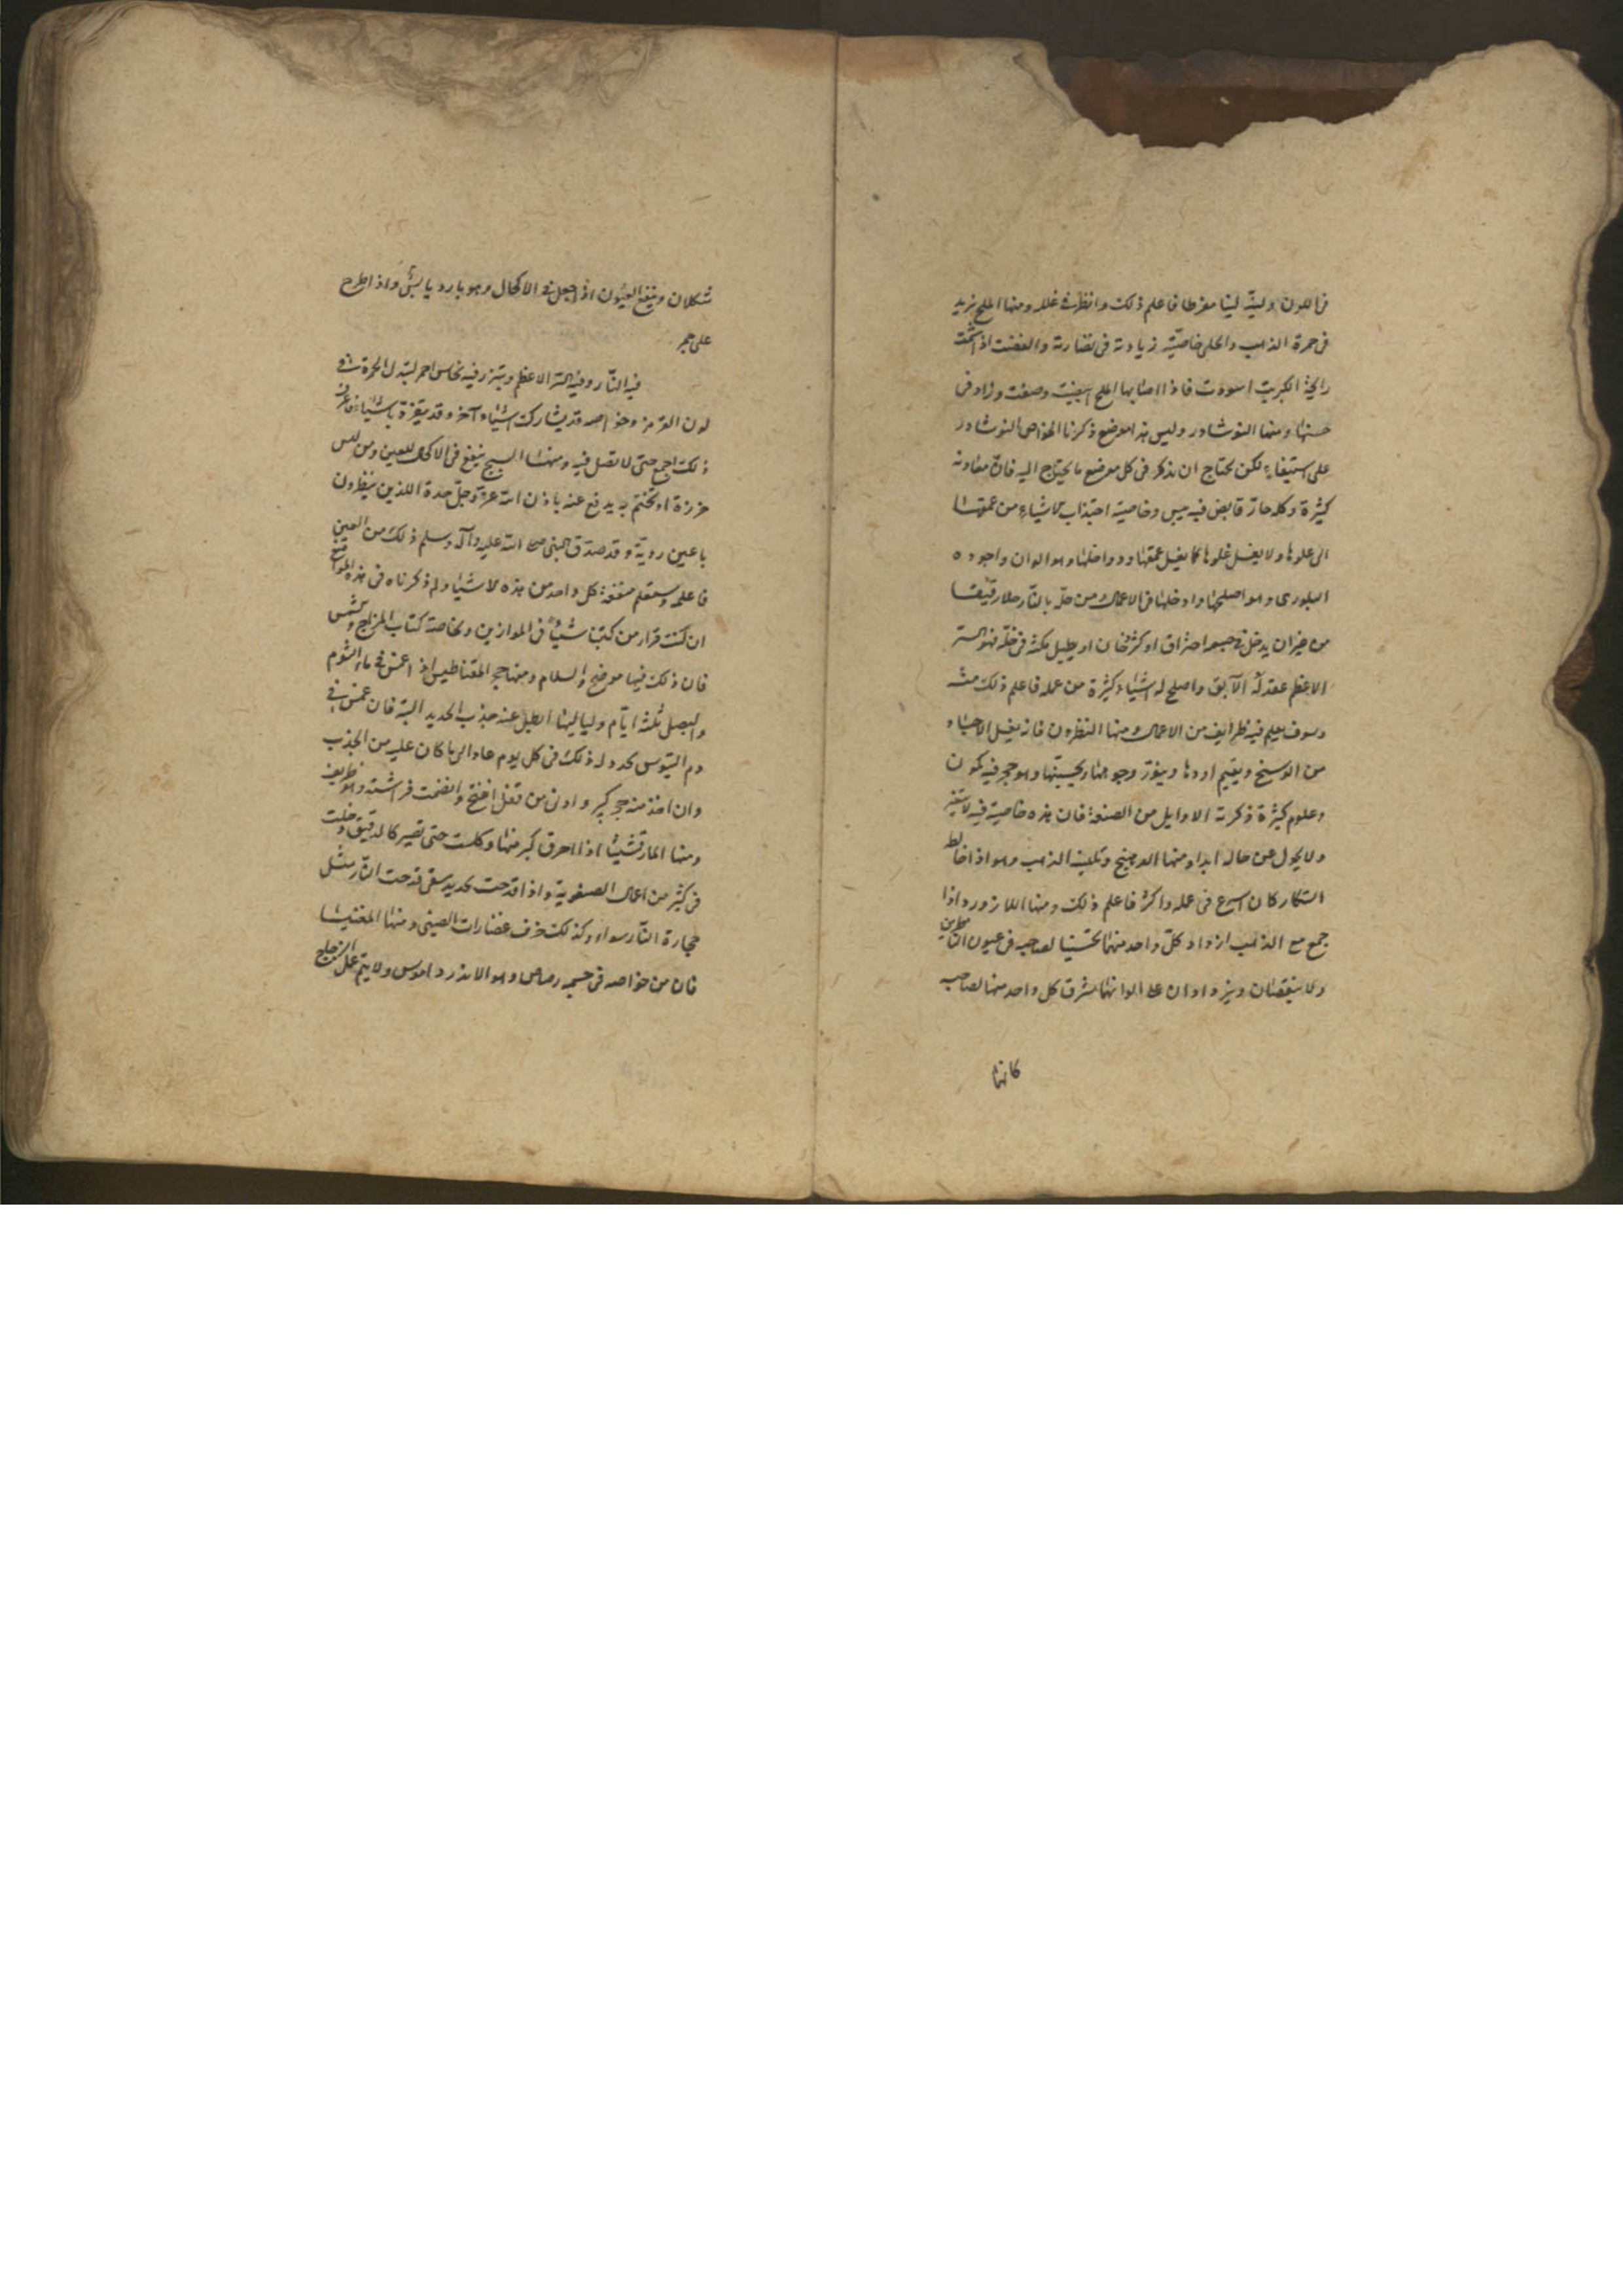 فى اللون ولينه لينا مفرطا فاعلم ذلك وانظر فى غلله ومنها الملح يزيد
فى حمرة الذهب والحلى خاصية زيادته فى نضارته والفضة اذا شمت
رايحة الكبريت اسودت فاذا اصابها الملح ابيضت وصفت وزاد فى
حسنها ومنها النوشادر وليس هذا موضع ذكرنا الخواص النوشادر
على استيفاء لكن يحتاج ان نذكر فى كل موضع ما يحتاج اليه فان معادنه
كثيرة وكله حار قابض فيه يبس وخاصية اجتذاب الاشياء من عمقها
الى علوها ولا يغسل علوها كما يغسل عمقها وداخلها وهو الوان واجوده
البلورى وهو اصلحها وادخلها فى الاعمال من حله بالنار حلا رقيقا
من غير ان يدخل فى جسمه احتراق او كثر دخان او يطيل مكثه فى حله فهو السر
الاعظم عقد له الآبق واصلح له اشياء كثيرة من عمله فاعلم ذلك منه
وسوف يعلم فيه ظرايف من الاعمال ومنها النطرون فانه يغسل الاجساد
من الوسخ ويقيم اودها وينور وجوهها ويحسنها وهو حجر فيه كمون
وعلوم كثيرة ذكرته الاوايل من الصنعة فان هذه خاصية فيه لا يتغير
ولا يحول عن حاله ابدا ومنها الدهنج وتليينه الذهب وهو اذا خالط
التنكار كان اسرع فى عمله واكثر فاعلم ذلك ومنها اللازورد اذا
جمع مع الذهب ازداد كل واحد منهما تحسينا لصاحبه فى عيون الناظرين
ولا ينقصان ويزدادان على الوانهما يشرق كل واحد منهما لصاحبه
كانهما
شكلان وينفع العيون اذا جعل فى الاكحال وهو بارد يابس واذا طرح
على جمر
فيه النار وفيه السر الاعظم فيه نحاس احمر الحمرة
لون القرمز وخواصه قد يشاركه اشياء آخر وقد باشياء فاعرف
ذلك اجمع حتى لا تضل فيه ومنها السبج ينفع فى الاكحال للعين ومن لبس
خرزة او تختم به يدفع عنه باذن الله عز وجل حدة اللذين ينظرون
باعين ردية وقد صدق النبى صلى الله عليه وآله وسلم ذلك من العين
فاعلمه وستعلم منفعة كل واحد من هذه الاشياء ولم ذكرناه فى هذه المواضع
ان كنت قرات من كتبنا شيئا فى الموازين وخاصة كتاب المزاج
فان ذلك فيها موضح والسلام ومنها حجر المقناطيس اذا غمس فى ماء الثوم
والبصل ثلثة ايام ولياليها ابطل عنه جذب الحديد البتة فان غمس فى
دم التيوس يجدد له ذلك فى كل يوم عاد الى ما كان عليه من الجذب
وان اخذ منه حجر كبير وادنى من قفل انفتح وانضمت فراشته وهو ظريف
ومنها المارقشيثا اذا احرق كبير منها وكلست حتى تصير كالدقيق دخلت
فى كثير من اعمال الصنعوية واذا قدحت بحديد سقى قدحت النار مثل
حجارة النار سواء وكذلك خزف غضارات الصينى ومنها المغنيسا
فان من خواصه فى جسمه رصاص وهو ولا يتم عمل الزجاج